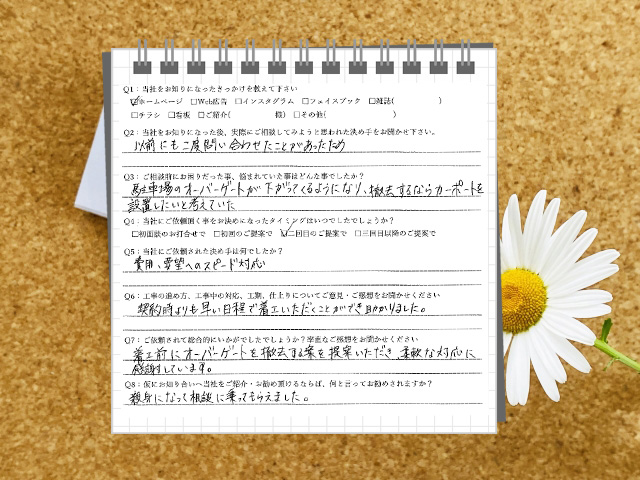 Q1：当社をお知りになったきっかけを教えて下さい
☑ホームページ　□Web広告　□インスタグラム　□フェイスブック　□雑誌(　　　　　)
□チラシ　□看板　□ご紹介(　　　　　様)　□その他(　　　　　　　)
Q2：当社をお知りになった後、実際にご相談してみようと思われた決め手をお聞かせ下さい。
以前にも二度問い合わせたことがあったため
Q3：ご相談前にお困りだった事、悩まれていた事はどんな事でしたか？
駐車場のオーバーゲートが下がってくるようになり、撤去するならカーポートを
設置したいと考えていた
Q4：当社にご依頼頂く事をお決めになったタイミングはいつでしたでしょうか？
□初面談のお打合せで　□初回のご提案で　☑二回目のご提案で　□三回目以降のご提案で
Q5：当社にご依頼された決め手は何でしたか？
費用、要望へのスピード対応
Q6：工事の進め方、工事中の対応、工期、仕上りについてご意見・ご感想をお聞かせください
契約時よりも早い日程で着工いただくことができ助かりました。
Q7：ご依頼されて総合的にいかがでしたでしょうか？率直なご感想をお聞かせください
着工前にオーバーゲートを撤去する案を提案いただき、柔軟な対応に
感謝しています。
Q8：仮にお知り合いへ当社をご紹介・お勧め頂けるならば、何と言ってお勧めされますか？
親身になって相談に乗ってもらえました。